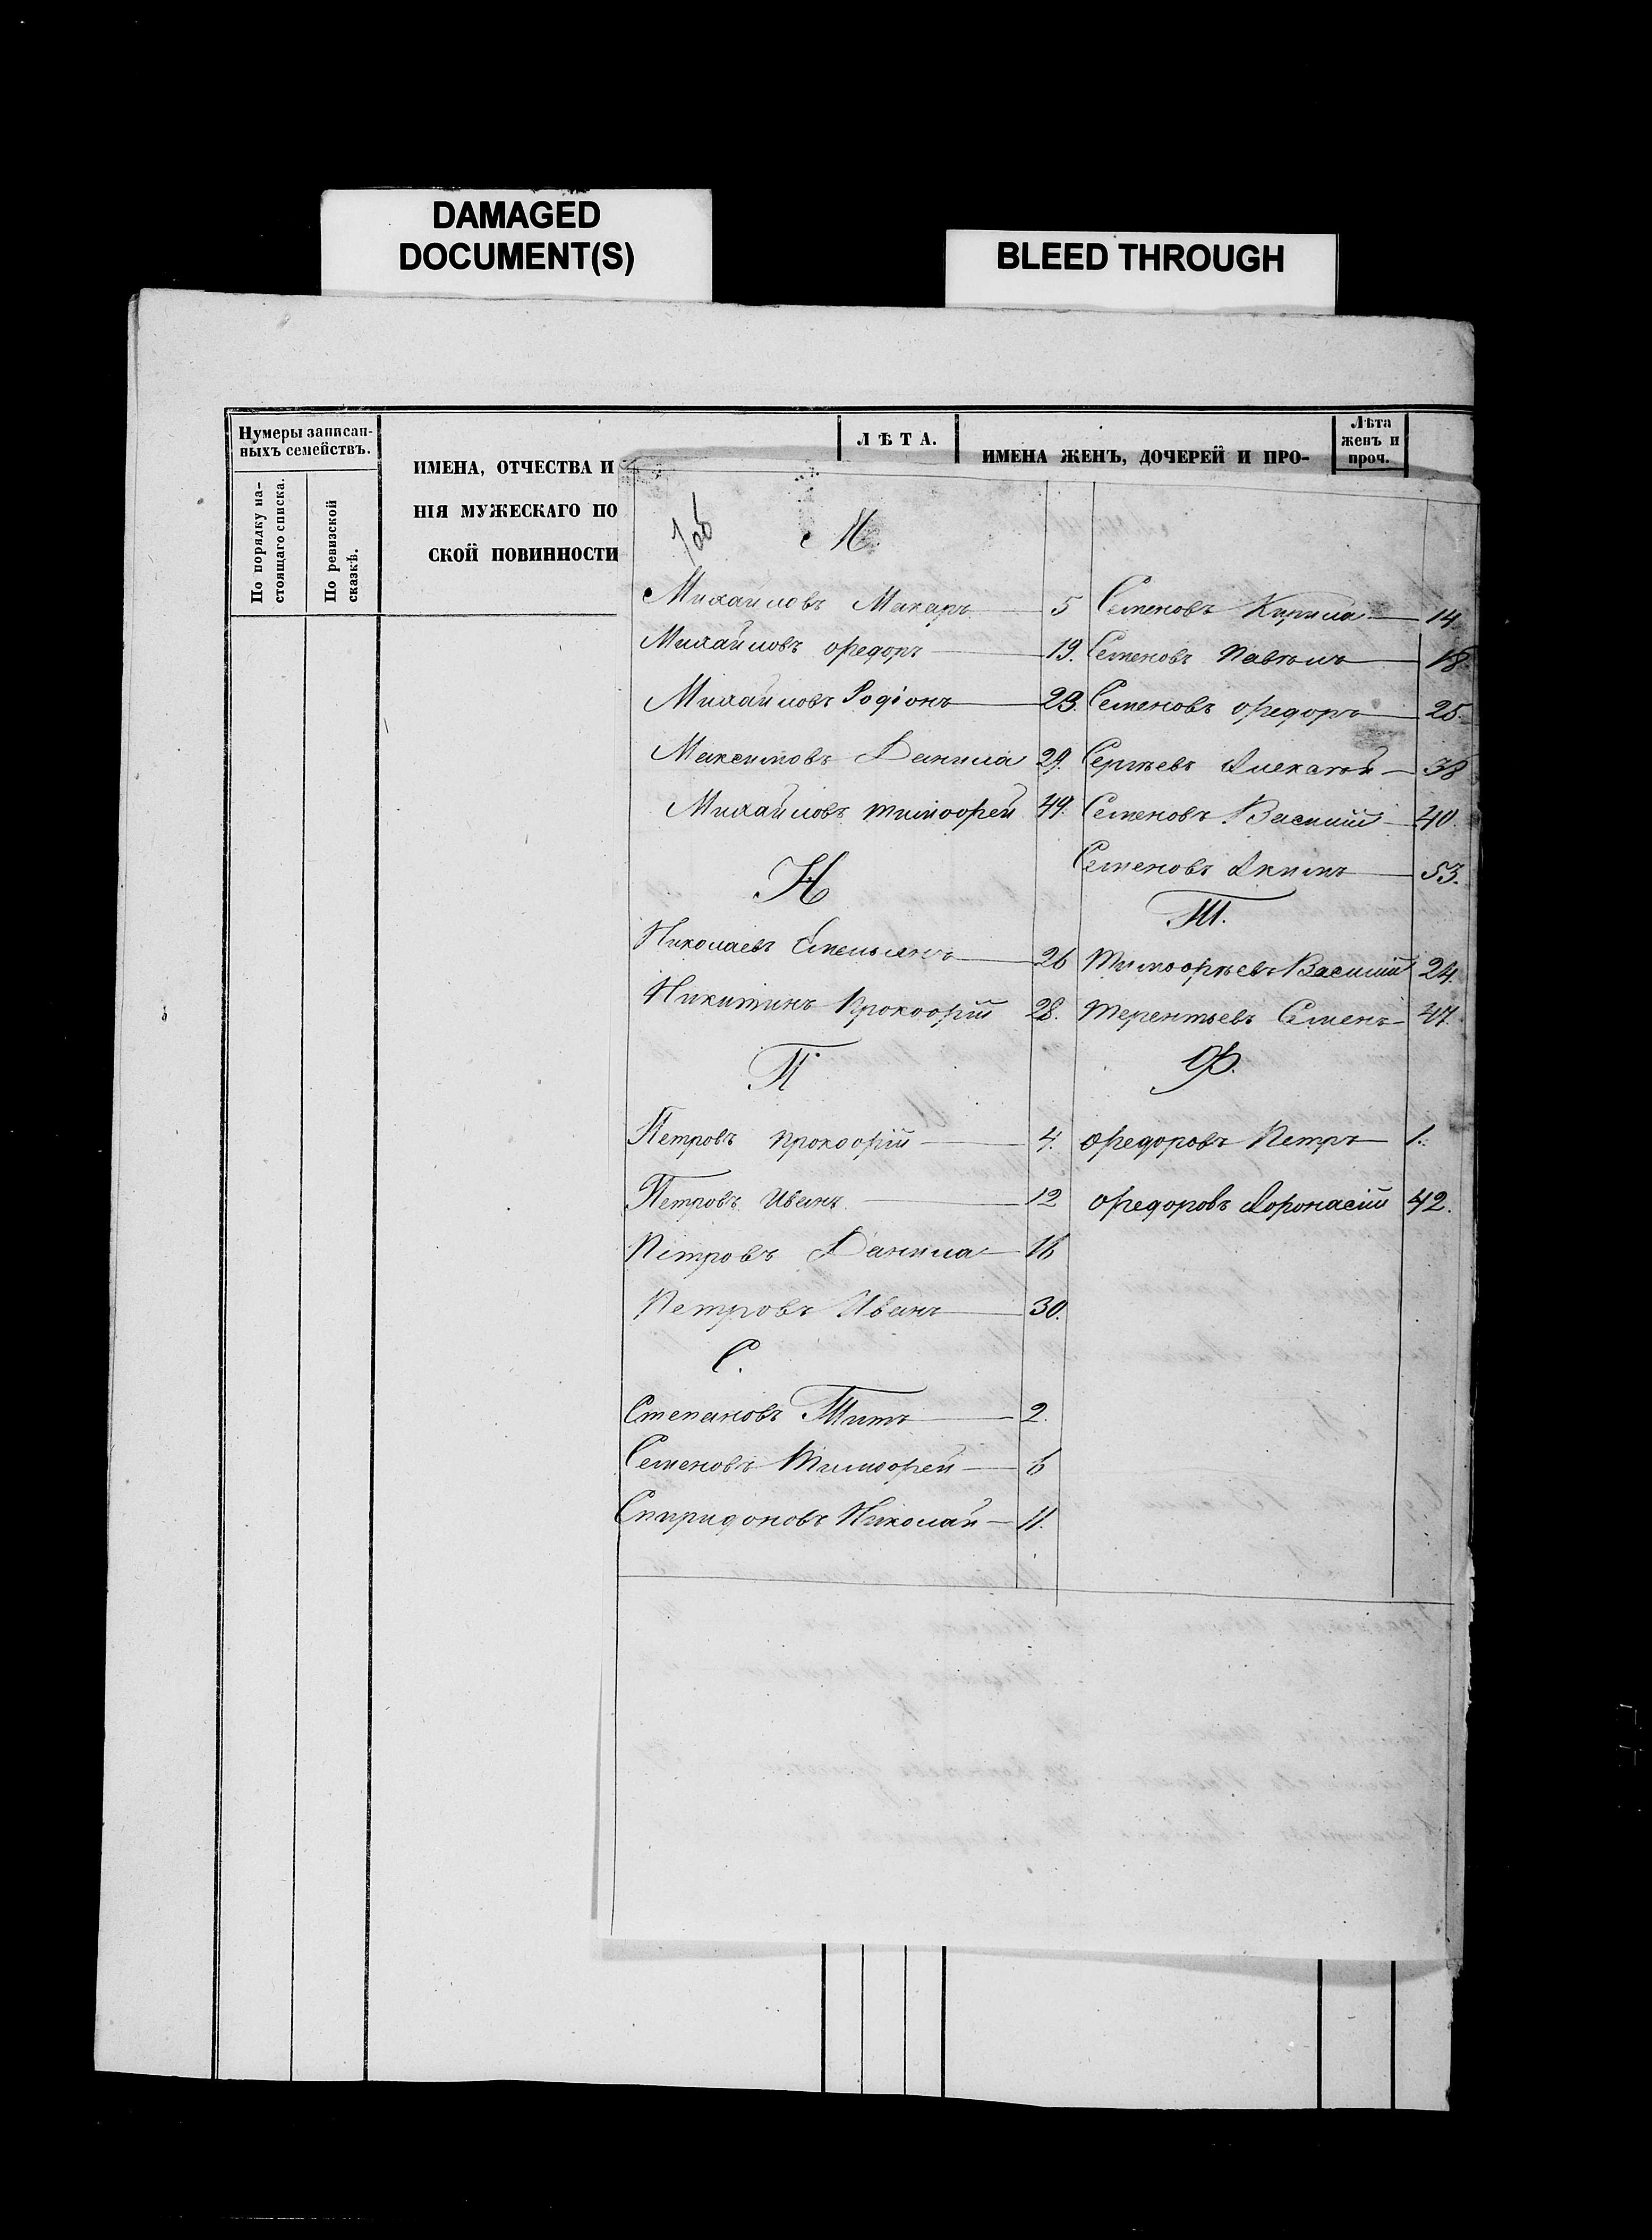 DAMAGED
DOCUMENT(S)
BLEED THROUGH
Нумеры записан-
ныхъ семействъ.
По порядку на-
стоящаго списка.
По ревизской
сказкѣ.
ИМЕНА, ОТЧЕСТВА И
НІЯ МУЖЕСКАГО ПО
СКОЙ ПОВИННОСТИ
ЛѢТА.
ИМЕНА ЖЕНЪ, ДОЧЕРЕЙ И ПРО-
Лѣта
женъ и
проч.
М.
Михайловъ Макаръ 5
Михайловъ Ѳедоръ 19.
Михайловъ Родіонъ 23.
Максимовъ Данила 29.
Михайловъ Тимофей 49.
Н
Николаевъ Емельянъ 26
Никитинъ Прокофій 28.
П
Петровъ Прокофій 4.
Петровъ Иванъ 12
Петровъ Данила 16
Петровъ Иванъ 30.
С.
Степановъ Титъ 2.
Семеновъ Тимофей 6
Спиридоновъ Николай 11.
Семеновъ Кирила 14.
Семеновъ Павелъ 18
Семеновъ Федоръ 25.
Сергѣевъ Алексѣй 38
Семеновъ Василій 40.
Семеновъ Акимъ 53.
Т.
Тимофѣевъ Василій 24.
Терентьевъ Семенъ 47.
Ф.
Федоровъ Петръ 1.
Федоровъ Афонасій 42.